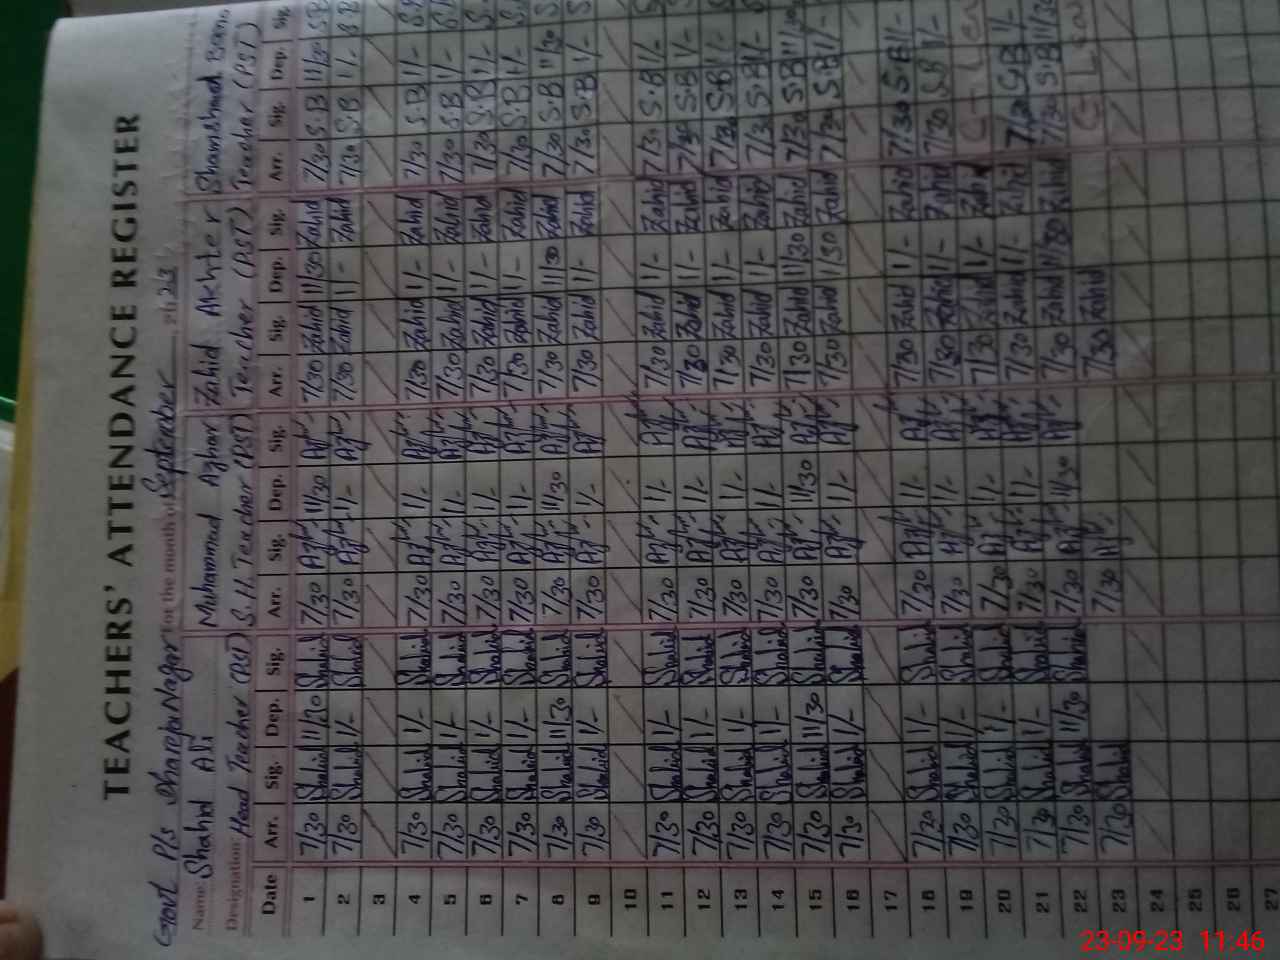 TEACHERS' ATTENDANCE REGISTER
Govt P/s Sharefa Nagar for the month of September 2023
Name: Shahid Ali Muhammad Azhar Zahid Akhter Shamshad Bano
Designation: Head Teacher (PST) S.H. Teacher (PST) Teacher (PST) Teacher (PST)
Date Arr. Sig. Dep. Sig. Arr. Sig. Dep. Sig. Arr. Sig. Dep. Sig. Arr. Sig. Dep. Sig.
1 7/30 Shahid 11/30 Shahid 7/30 11/30 7/30 Zahid 11/30 Zahid 7/30 S.B 11/30 S.B
2 7/30 Shahid 1/- Shahid 7/30 1/- 7/30 Zahid 11/- Zahid 7/30 S.B 1/- S.B
3
4 7/30 Shahid 1/- Shahid 7/30 1/- 7/30 Zahid 1/- Zahid 7/30 S.B 1/-
5 7/30 Shahid 1/- Shahid 7/30 1/- 7/30 Zahid 1/- Zahid 7/30 S.B 1/-
6 7/30 Shahid 1/- Shahid 7/30 1/- 7/30 Zahid 1/- Zahid 7/30 S.B 1/-
7 7/30 Shahid 1/- Shahid 7/30 1/- 7/30 Zahid 1/- Zahid 7/30 S.B 1/-
8 7/30 Shahid 11/30 Shahid 7/30 11/30 7/30 Zahid 11/30 Zahid 7/30 S.B 11/30
9 7/30 Shahid 1/- Shahid 7/30 1/- 7/30 Zahid 1/- Zahid 7/30 S.B 1/-
10
11 7/30 Shahid 1/- Shahid 7/30 1/- 7/30 Zahid 1/- Zahid 7/30 S.B 1/-
12 7/30 Shahid 1/- Shahid 7/30 1/- 7/30 Zahid 1/- Zahid 7/30 S.B 1/-
13 7/30 Shahid 1/- Shahid 7/30 1/- 7/30 Zahid 1/- Zahid 7/30 S.B 1/-
14 7/30 Shahid 1/- Shahid 7/30 1/- 7/30 Zahid 1/- Zahid 7/30 S.B 1/-
15 7/30 Shahid 11/30 Shahid 7/30 11/30 7/30 Zahid 11/30 Zahid 7/30 S.B 11/30
16 7/30 Shahid 1/- Shahid 7/30 1/- 7/30 Zahid 1/30 Zahid 7/30 S.B 1/-
17
18 7/30 Shahid 1/- Shahid 7/30 1/- 7/30 Zahid 1/- Zahid 7/30 S.B 1/-
19 7/30 Shahid 1/- Shahid 7/30 1/- 7/30 Zahid 1/- Zahid 7/30 S.B 1/-
20 7/30 Shahid 1/- Shahid 7/30 1/- 7/30 Zahid 1/- Zahid
21 7/30 Shahid 1/- Shahid 7/30 1/- 7/30 Zahid 1/- Zahid 7/30 S.B 1/-
22 7/30 Shahid 11/30 Shahid 7/30 11/30 7/30 Zahid 11/30 Zahid 7/30 S.B 11/30
23 7/30 Shahid 7/30 7/30 Zahid
24
25
26
27
23-09-23 11:46